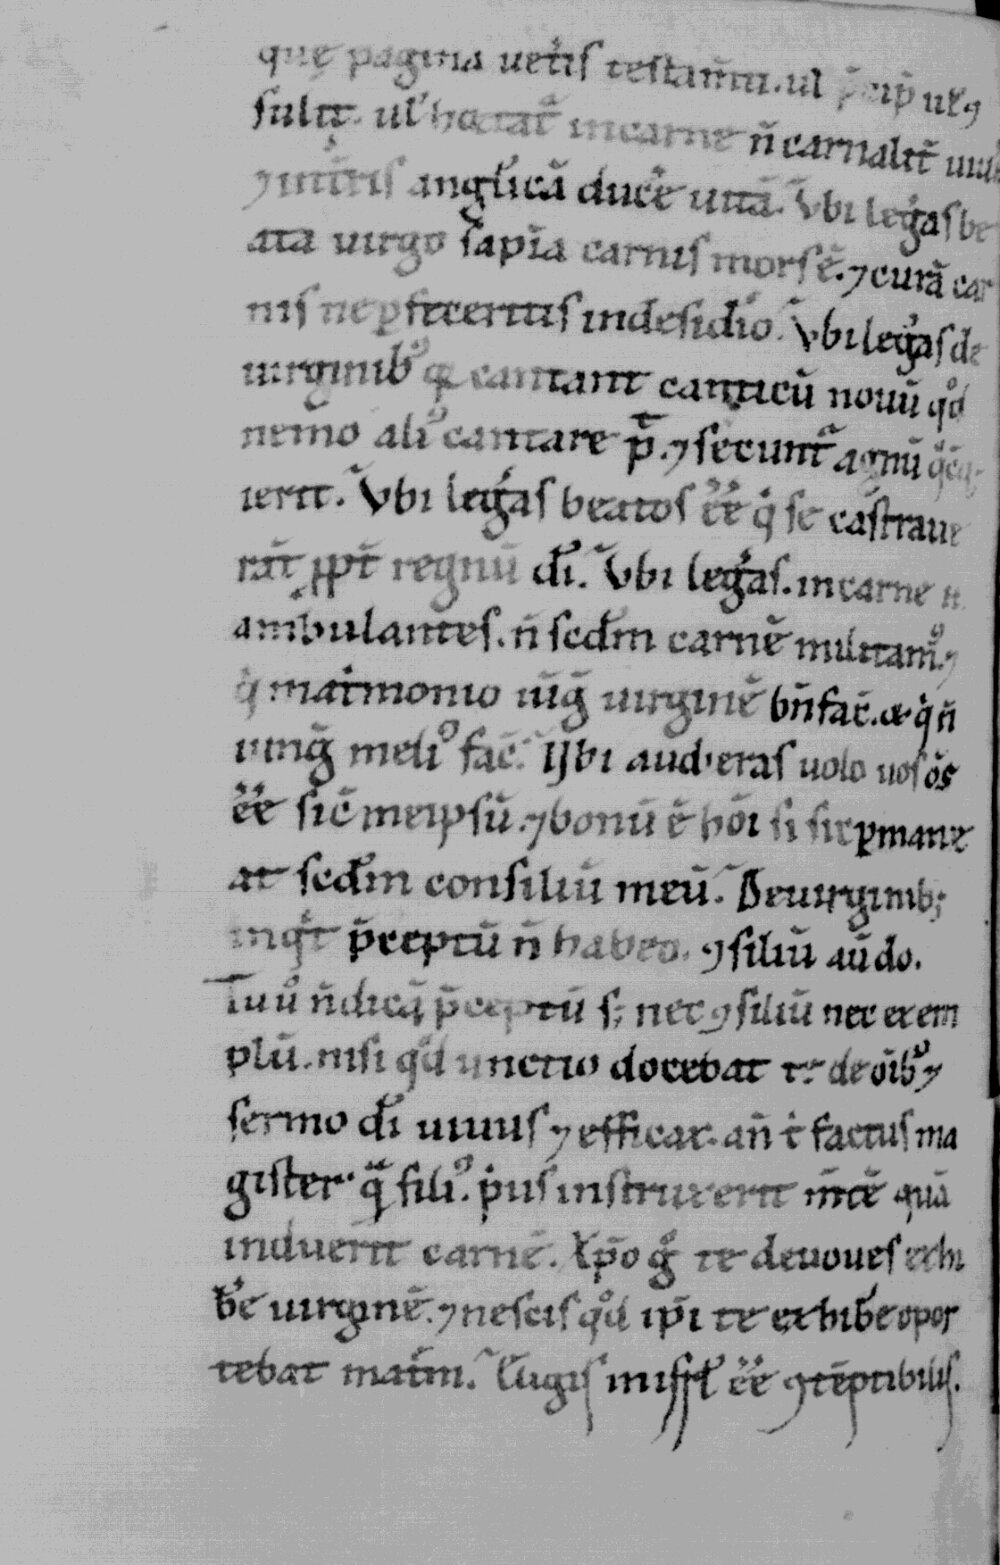 quę pagina uet̃is testam̃tu. ul p̃cip̃ ul ꝯ
sulit. ul hortat̃ in carne ñ carnalit̃
⁊ in t̃ris anglicã ducẽ uitã. Vbi legas be
ata uirgo sapĩa carnis mors ẽ. ⁊ curã car
nis ne ꝑfeceritis in desidĩo. Vbi legas de
uirginibꝰ q̃ cantant canticũ nouũ qd̾
nemo aliꝰ cantare p̃t. ⁊ secunt̃ agnũ
ierit. Vbi legas beatos ẽẽ q̾ se castraue
rãt ꝓpt̃ regnũ dĩ. Vbi legas. in carne
ambulantes. ñ scd̃m carnẽ militamꝰ. ⁊
q̾ mat̾monio iũg̃ uirginẽ bñ fac̃. & q̾ ñ
iung̃ meliꝰ fac̃. Vbi audieras uolo uos õs
ẽẽ sic̃ me ipsũ. ⁊ bonũ ẽ hõi si sic ꝑmane
at scd̃m consiliũ meũ. De uirginib;
inq̾t p̃ceptũ ñ habeo. ꝯsiliũ aũ do.
Tu ů ñ dicã p̃ceptũ s; nec ꝯsiliũ nec exem
plũ. nisi qd̾ unctio docebat te de oĩbꝰ ⁊
sermo dĩ uiuus ⁊ efficax. añ t̾ factus ma
gister. q̃ filiꝰ. p̾us instruxerit m̃tẽ quã
induerit carnẽ. Xp̃o g̾ te deuoues exhi
b̾e uirginẽ. ⁊ nescis qd̾ ip̃i te exhib̾e opor
tebat mat̃m. Elugis ẽẽ ꝯtẽptibilis.